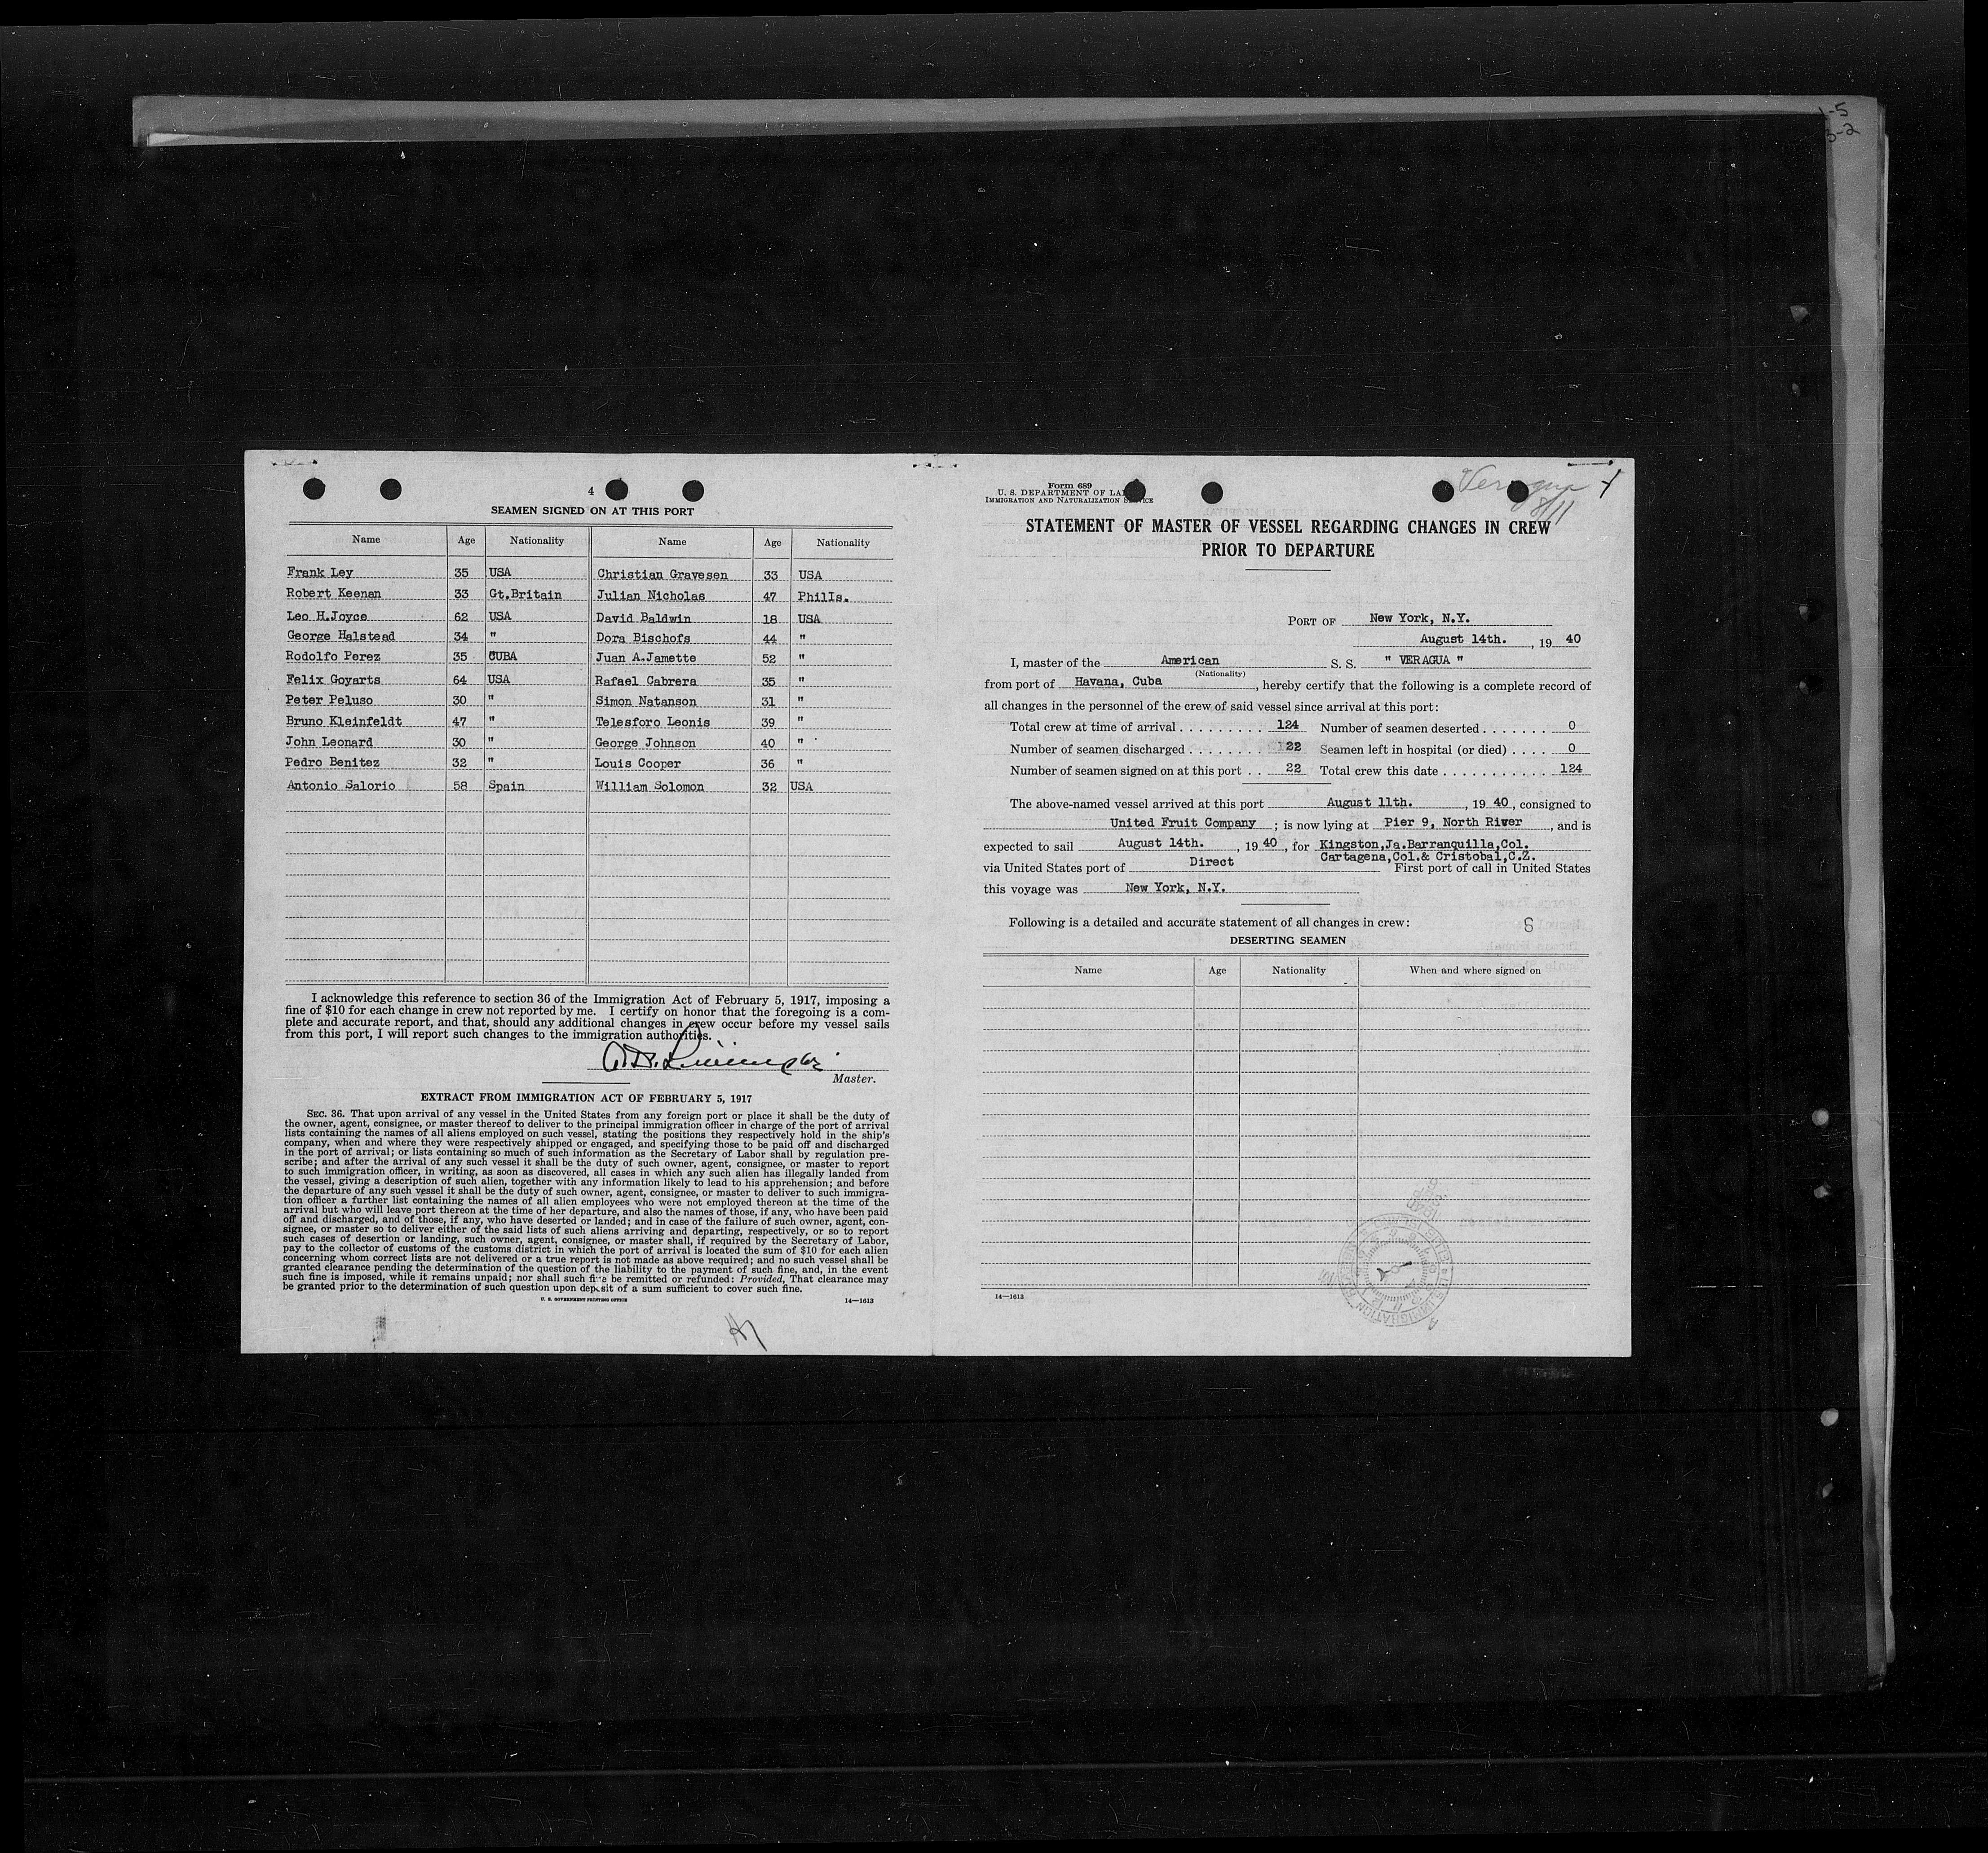 1-5
5-2
4
SEAMEN SIGNED ON AT THIS PORT
Name Age Nationality Name Age Nationality
Frank Ley 35 USA Christian Gravesen 33 USA
Robert Keenan 33 Gt.Britain Julian Nicholas 47 PhilIs.
Leo H.Joyce 62 USA David Baldwin 18 USA
George Halstead 34 " Dora Bischofs 44 "
Rodolfo Perez 35 CUBA Juan A.Jamette 52 "
Felix Goyarts 64 USA Rafael Cabrera 35 "
Peter Peluso 30 " Simon Natanson 31 "
Bruno Kleinfeldt 47 " Telesforo Leonis 39 "
John Leonard 30 " George Johnson 40 "
Pedro Benitez 32 " Louis Cooper 36 "
Antonio Salorio 58 Spain William Solomon 32 USA
I acknowledge this reference to section 36 of the Immigration Act of February 5, 1917, imposing a
fine of $10 for each change in crew not reported by me. I certify on honor that the foregoing is a com-
plete and accurate report, and that, should any additional changes in crew occur before my vessel sails
from this port, I will report such changes to the immigration authorities.
Master.
EXTRACT FROM IMMIGRATION ACT OF FEBRUARY 5, 1917
SEC. 36. That upon arrival of any vessel in the United States from any foreign port or place it shall be the duty of
the owner, agent, consignee, or master thereof to deliver to the principal immigration officer in charge of the port of arrival
lists containing the names of all aliens employed on such vessel, stating the positions they respectively hold in the ship's
company, when and where they were respectively shipped or engaged, and specifying those to be paid off and discharged
in the port of arrival; or lists containing so much of such information as the Secretary of Labor shall by regulation pre-
scribe; and after the arrival of any such vessel it shall be the duty of such owner, agent, consignee, or master to report
to such immigration officer, in writing, as soon as discovered, all cases in which any such alien has illegally landed from
the vessel, giving a description of such alien, together with any information likely to lead to his apprehension; and before
the departure of any such vessel it shall be the duty of such owner, agent, consignee, or master to deliver to such immigra-
tion officer a further list containing the names of all alien employees who were not employed thereon at the time of the
arrival but who will leave port thereon at the time of her departure, and also the names of those, if any, who have been paid
off and discharged, and of those, if any, who have deserted or landed; and in case of the failure of such owner, agent, con-
signee, or master so to deliver either of the said lists of such aliens arriving and departing, respectively, or so to report
such cases of desertion or landing, such owner, agent, consignee, or master shall, if required by the Secretary of Labor,
pay to the collector of customs of the customs district in which the port of arrival is located the sum of $10 for each alien
concerning whom correct lists are not delivered or a true report is not made as above required; and no such vessel shall be
granted clearance pending the determination of the question of the liability to the payment of such fine, and, in the event
such fine is imposed, while it remains unpaid; nor shall such fine be remitted or refunded: Provided, That clearance may
be granted prior to the determination of such question upon deposit of a sum sufficient to cover such fine.
U. S. GOVERNMENT PRINTING OFFICE 14—1613
Form 689
U. S. DEPARTMENT OF LABOR
IMMIGRATION AND NATURALIZATION SERVICE
Veragua
8/11
STATEMENT OF MASTER OF VESSEL REGARDING CHANGES IN CREW
PRIOR TO DEPARTURE
PORT OF New York, N.Y.
August 14th. , 19 40
I, master of the American S. S. " VERAGUA "
(Nationality)
from port of Havana, Cuba , hereby certify that the following is a complete record of
all changes in the personnel of the crew of said vessel since arrival at this port:
Total crew at time of arrival 124 Number of seamen deserted 0
Number of seamen discharged 22 Seamen left in hospital (or died) 0
Number of seamen signed on at this port 22 Total crew this date 124
The above-named vessel arrived at this port August 11th. , 19 40, consigned to
United Fruit Company ; is now lying at Pier 9, North River , and is
expected to sail August 14th. , 19 40, for Kingston,Ja.Barranquilla,Col.
Cartagena,Col.& Cristobal,C.Z.
via United States port of Direct First port of call in United States
this voyage was New York, N.Y.
Following is a detailed and accurate statement of all changes in crew: 8
DESERTING SEAMEN
Name Age Nationality When and where signed on
14—1613